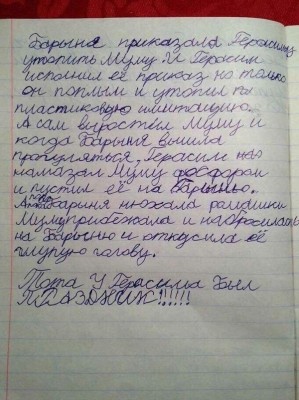 Барыня приказала Герасиму
утопить Муму И Герасим
исполнил её приказ но только
он поплыл и утопил
пластиковую имитацию.
А сам вырастил Муму и
когда Барыня вышла
прогуляться, Герасим на
намазал Муму фосфором
и пустил её на Барыню.
Пока Барыня нюхала ромашки
Муму прибежала и набросилась
на Барыню и откусила её
глупую голову.
Тота У Герасима Был
ПРАЗДНИК!!!!!!